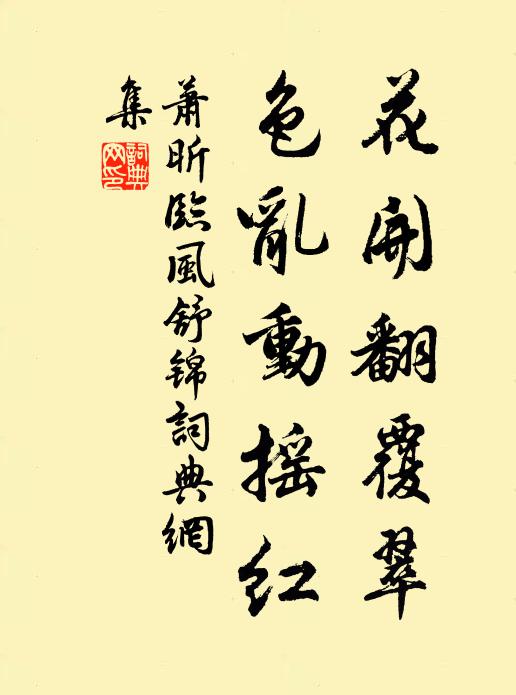 花開翻覆翠
色亂動摇紅
蕭昕臨風舒錦詞典網
集
詞典
网印